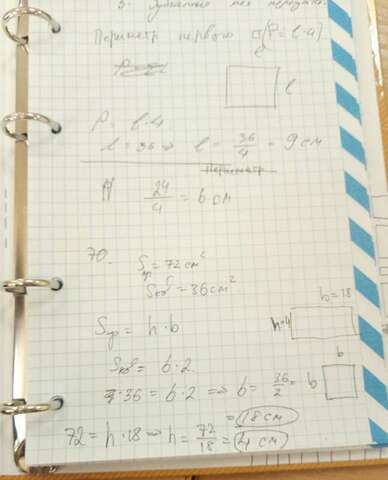 3.
Периметр первого □[P = l·4]
l
P = l·4
l = 36 => l = 36/4 = 9 см
Периметр
24/4 = 6 см
70.
Sпр = 72 см²
Sкв = 36 см²
b = 18
Sпр = h·b
h=4
b
Sкв = b·2
36 = b·2 => b = 36/2 =
b
= 18 см
72 = h·18 => h = 72/18 = 4 см